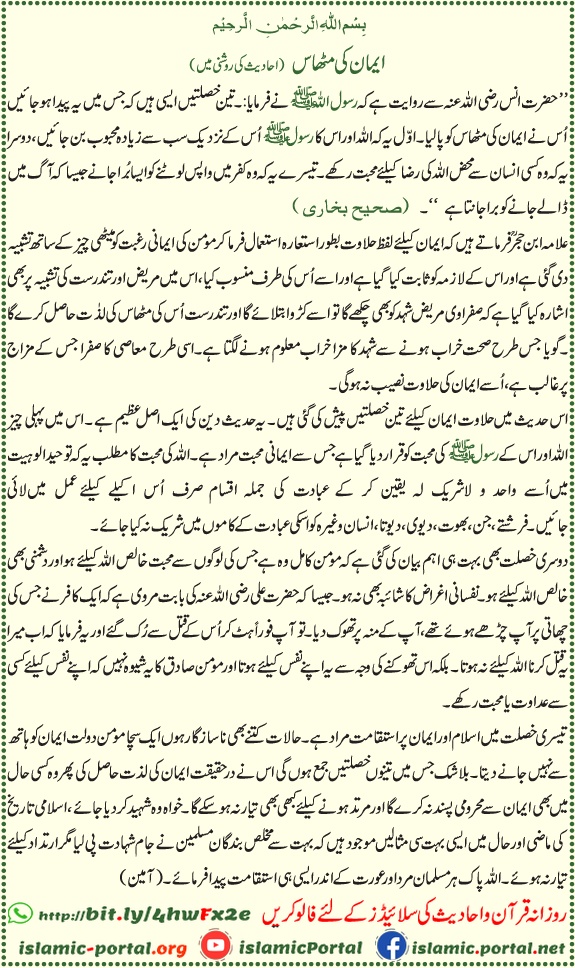 بِسْمِ اللهِ الرَّحْمٰنِ الرَّحِيْمِ
ایمان کی مٹھاس (احادیث کی روشنی میں)
’’حضرت انس رضی اللہ عنہ سے روایت ہے کہ رسول اللہ ﷺ نے فرمایا:۔ تین خصلتیں ایسی ہیں کہ جس میں یہ پیدا ہو جائیں
اُس نے ایمان کی مٹھاس کو پالیا۔ اوّل یہ کہ اللہ اور اس کا رسول ﷺ اُس کے نزدیک سب سے زیادہ محبوب بن جائیں، دوسرا
یہ کہ وہ کسی انسان سے محض اللہ کی رضا کیلئے محبت رکھے۔ تیسرے یہ کہ وہ کفر میں واپس لوٹنے کو ایسا بُرا جانے جیسا کہ آگ میں
ڈالے جانے کو برا جانتا ہے ‘‘۔ (صحیح بخاری)
علامہ ابن حجرؒ فرماتے ہیں کہ ایمان کیلئے لفظ حلاوت بطور استعارہ استعمال فرما کر مؤمن کی ایمانی رغبت کو میٹھی چیز کے ساتھ تشبیہ
دی گئی ہے اور اس کے لازمہ کو ثابت کیا گیا ہے اور اسے اُس کی طرف منسوب کیا، اس میں مریض اور تندرست کی تشبیہ پر بھی
اشارہ کیا گیا ہے کہ صفراوی مریض شہد کو بھی چکھے گا تو اسے کڑوا بتلائے گا اور تندرست اُس کی مٹھاس کی لذّت حاصل کرے گا
۔ گویا جس طرح صحت خراب ہونے سے شہد کا مزا خراب معلوم ہونے لگتا ہے۔ اسی طرح معاصی کا صفرا جس کے مزاج
پر غالب ہے، اُسے ایمان کی حلاوت نصیب نہ ہوگی۔
اس حدیث میں حلاوت ایمان کیلئے تین خصلتیں پیش کی گئی ہیں۔ یہ حدیث دین کی ایک اصل عظیم ہے۔ اس میں پہلی چیز
اللہ اور اس کے رسول ﷺ کی محبت کو قرار دیا گیا ہے جس سے ایمانی محبت مراد ہے۔ اللہ کی محبت کا مطلب یہ کہ توحید الوہیت
میں اُسے واحد و لا شریک لہ یقین کر کے عبادت کی جملہ اقسام صرف اُس اکیلے کیلئے عمل میں لائی
جائیں۔ فرشتے، جن، بھوت، دیوی، دیوتا، انسان وغیرہ کو اسکی عبادت کے کاموں میں شریک نہ کیا جائے۔
دوسری خصلت بھی بہت ہی اہم بیان کی گئی ہے کہ مؤمن کامل وہ ہے جس کی لوگوں سے محبت خالص اللہ کیلئے ہو اور دشمنی بھی
خالص اللہ کیلئے ہو۔ نفسانی اغراض کا شائبہ بھی نہ ہو۔ جیسا کہ حضرت علی رضی اللہ عنہ کی بابت مروی ہے کہ ایک کافر نے جس کی
چھاتی پر آپ چڑھے ہوئے تھے، آپ کے منہ پر تھوک دیا۔ تو آپ فوراً ہٹ کر اُس کے قتل سے رُک گئے اور یہ فرمایا کہ اب میرا
یہ قتل کرنا اللہ کیلئے نہ ہوتا۔ بلکہ اس تھوکنے کی وجہ سے یہ اپنے نفس کیلئے ہوتا اور مؤمن صادق کا یہ شیوہ نہیں کہ اپنے نفس کیلئے کسی
سے عداوت یا محبت رکھے۔
تیسری خصلت میں اسلام اور ایمان پر استقامت مراد ہے۔ حالات کتنے بھی ناسازگار ہوں ایک سچا مؤمن دولت ایمان کو ہاتھ
سے نہیں جانے دیتا۔ بلاشک جس میں تینوں خصلتیں جمع ہوں گی اس نے در حقیقت ایمان کی لذت حاصل کی پھر وہ کسی حال
میں بھی ایمان سے محرومی پسند نہ کرے گا اور مرتد ہونے کیلئے کبھی بھی تیار نہ ہو سکے گا۔ خواہ وہ شہید کر دیا جائے، اسلامی تاریخ
کی ماضی اور حال میں ایسی بہت سی مثالیں موجود ہیں کہ بہت سے مخلص بندگان مسلمین نے جام شہادت پی لیا مگر ارتداد کیلئے
تیار نہ ہوئے۔ اللہ پاک ہر مسلمان مرد اور عورت کے اندر ایسی ہی استقامت پیدا فرمائے۔ (آمین)
روزانہ قرآن و احادیث کی سلائیڈز کے لئے فالو کریں http://bit.ly/4hwFx2e
islamic-portal.org islamicPortal islamic.portal.net